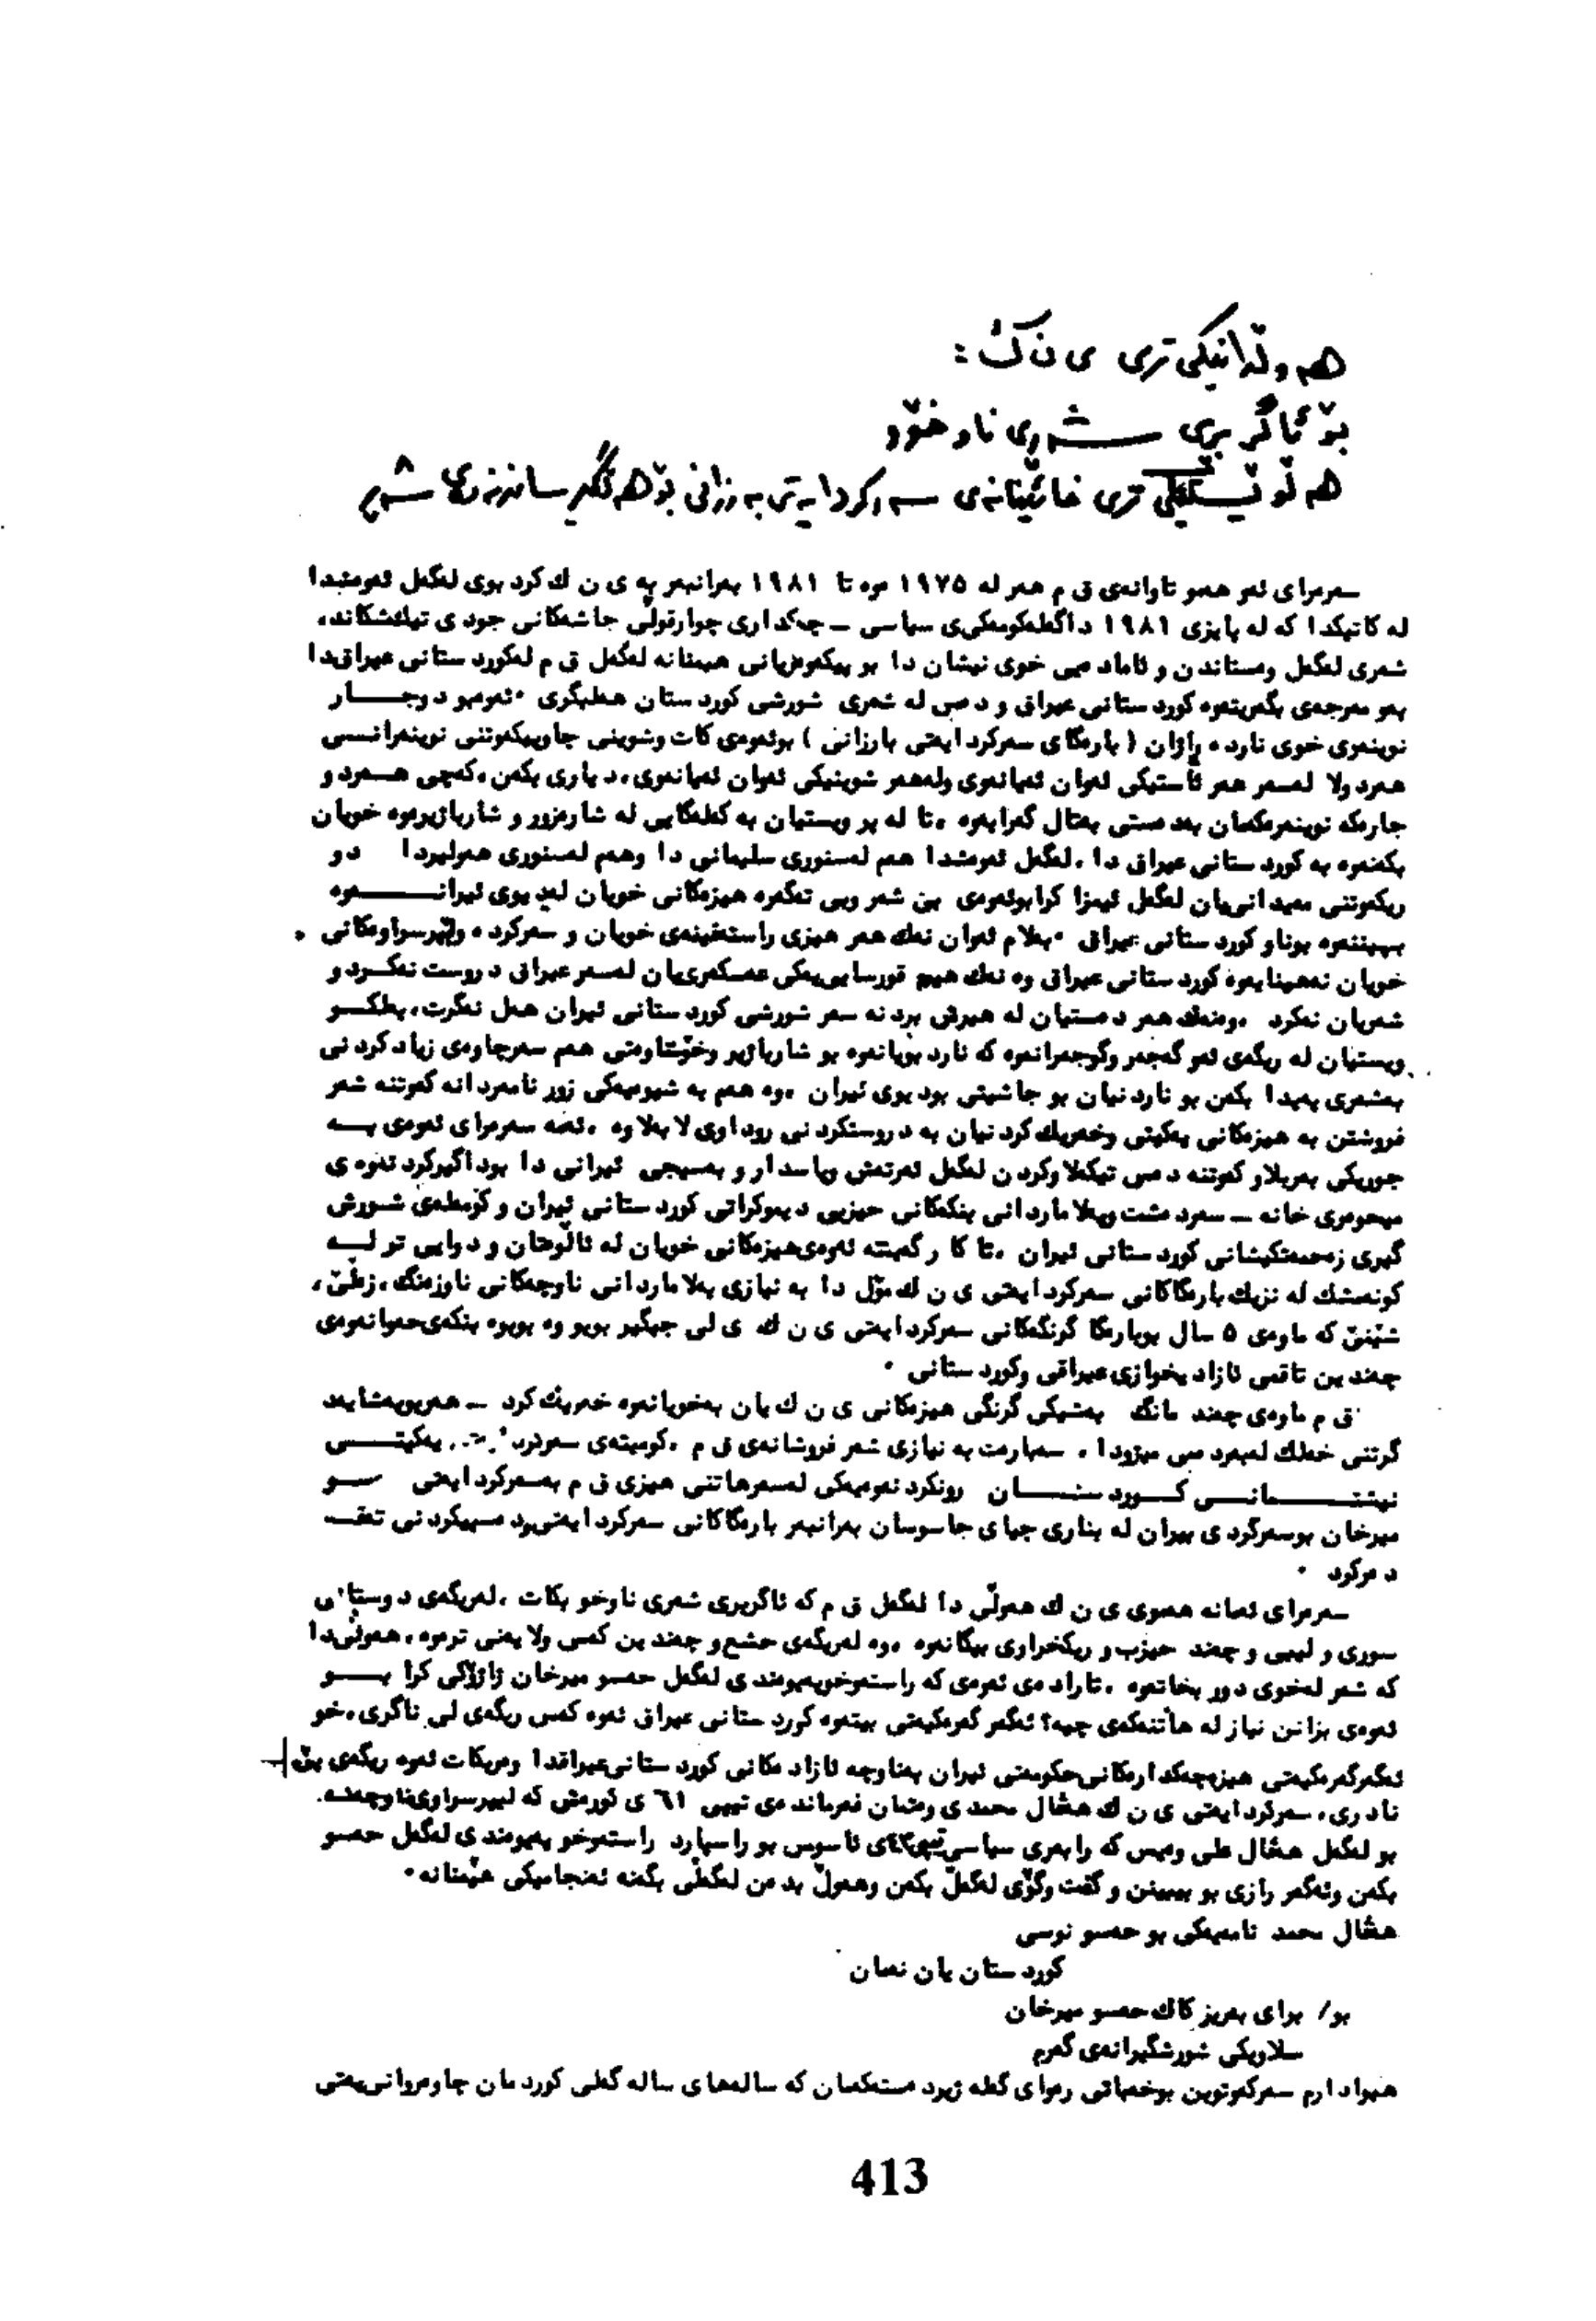 هەوڵدانێکی تری ی ن ک :
بۆ ئاگر بڕی شەڕی ناو خۆ و
هەڵوێستێکی تری خائینانەی سەرکردایەتی بەرزانی بۆ هەڵگیرساندنەوەی شەڕ
سەرەرای ئەو هەمو تاوانەی ق م هەر لە ١٩٧٥ ەوە تا ١٩٨١ بەرانبەر بە ی ن ك کرد بوی لەگەل ئەوەشدا
لە کاتیکدا کە لە پایزی ١٩٨١ دا گەلەکومەکی سیاسی – چەکداری چوارقولی جاشەکانی جودی تیکشکاند،
شەری لەگەل وەستاندن و ئامادەیی خوی نیشان دا بو پیکەوەژیانی هیمنانە لەگەل ق م لەکوردستانی عیراقدا
بەو مەرجەی بگەریتەوە کوردستانی عیراق و دەس لە شەری شورشی کوردستان هەلبگری ٠ئەوەبو دوجار
نوینەری خوی نارده رازان ( بارەگای سەرکردایەتی بارزانی ) بوئەوەی کات وشوینی چاوپیکەوتنی نوینەرانی
هەردولا لەسەر هەر ئاستیکی ئەوان ئەیانەوی ولەهەر شوینیکی ئەوان ئەیانەوی،دیاری بکەن ،کەچی هەردو
جارەکە نوینەرەکەمان بەدەستی بەتال گەرایەوە ،تا لە پر ویستیان بە کەلەگایی لە شارەزور و شارباژیرەوە خویان
بکەنەوە بە کوردستانی عیراق دا ،لەگەل ئەوەشدا هەم لەسنوری سلیمانی دا وهەم لەسنوری هەولیردا دو
ریکەوتنی مەیدانی‌یان لەگەل ئیمزا کرا بوئەوەی بێ شەر وبی تەگەرە هیزەکانی خویان لەدیوی ئیرانەوە
بهیننەوە بوناو کوردستانی عیراق ٠بەلام ئەوان نەك هەر هیزی راستەقینەی خویان و سەرکرده ولیپرسراوەکانی
خویان نەهینایەوە کوردستانی عیراق وە نەك هیچ قورسایی‌یەکی عەسکەری‌یان لەسەر عیراق دروست نەکرد و
شەریان نەکرد ،وەنەك هەر دەستیان لە هیرش بردنە سەر شورشی کوردستانی ئیران هەل نەگرت، بەلکو
ویستیان لە ریگەی ئەو گەجەر وگوجەرانەوە کە نارد بویانەوە بو شارباژیر وخۆشناوەتی هەم سەرچاوەی زیادکردنی
بەشەری پەیدا بکەن بو ناردنیان بو جاشیتی بودیوی ئیران ،وە هەم بە شیوەیەکی زور نامەردانە کەوتنە شەر
فروشتن بە هیزەکانی یەکیتی وخەریك کردنیان بە دروستکردنی روداوی لا بەلاوە ،ئەمە سەرەرای ئەوەی بە
جوریکی بەربلاو کەوتنە دەس تیکەلاوکردن لەگەل ئەرتەش وپاسدار و بەسیجی ئیرانی دا بوداگیرکردنەوەی
میحوەری خانە – سەردەشت وپەلاماردانی بنکەکانی حیزبی دیموکراتی کوردستانی ئیران و کۆمەلەی شورش
گیری زەحمەتکیشانی کوردستانی ئیران ،تا کار گەیشتە ئەوەی هیزەکانی خویان لە ئالوەتان و دوایی تر لە
کونەمشك لە نزیك بارەگاکانی سەرکردایەتی ی ن ك مۆل دا بە نیازی پەلاماردانی ناوچەکانی ناوزەنگ، زەلێ،
شێنێ کە ماوەی ٥ سال بوبارەگا گرنگەکانی سەرکردایەتی ی ن ك ی لی جیگیر بوبو وە بوبوە بنکەی‌حەوانەوەی
چەندین تاقمی ئازادیخوازی عیراقی وکوردستانی ٠
ق م ماوەی چەند مانگ بەشیکی گرنگی هیزەکانی ی ن ك یان بەخویانەوە خەریك کرد –
گرتنی خەلك لەبەردەمی میژودا ، سەبارەت بە نیازی شەر فروشانەی ق م ،کومیتەی یەکیتی
نیشتمانی کوردستان رونکردنەوەیەکی لەسەرهاتنی هیزی ق م بەسەرکردایەتی حسو
میرخان بوسەرگردی بیران لە بناری چیای جاسوسان بەرانبەر بارەگاکانی سەرکردایەتی‌بو دەسپیکردنی تەقە
دەرکرد ٠
سەرەرای ئەمانە هەموی ی ن ك هەولی دا لەگەل ق م کە ئاگربری شەری ناوخو بکات ،لەریگەی دوستانی
سوری و لیبی و چەند حیزب و ریکخراوی بیگانەوە ،وە لەریگەی حشع و چەندین کەس ولایەنی ترەوە، هەولی‌دا
کە شەر لەخوی دور بخاتەوە ،تارادەی ئەوەی کە راستەوخوپەیوەندی لەگەل حەسو میرخان ژاژۆکی کرا بو
ئەوەی بزانن نیاز لە هاتنەکەی چیە؟ ئەگەر گەرەکیەتی بیتەوە کوردستانی عیراق ئەوە کەس ریگەی لی ناگری،خو
ئەگەرگەرەکیەتی هیزوچەکدارەکانی‌حکومەتی ئیران بەناوچە ئازادەکانی کوردستانی‌عیراقدا وەربکات ئەوە ریگەی پێ
نادری، سەرکردایەتی ی ن ك هەڤال محمدی رەمەزان فەرماندەی تیپی ٦١ ی کورەش کە لیپرسراوی‌ناوچەکە
بو لەگەل هەڤال علی وەیس کە رابەری سیاسی تیپی ٤٢ی ئاسوس بو راسپارد راستەوخو پەیوەندی لەگەل حەسو
بکەن وئەگەر رازی بو بیبینن و گفت وگۆی لەگەل بکەن وهەول بدەن لەگەلی بگەنە ئەنجامیکی هێمنانە ٠
هەڤال محمد نامەیەکی بو حەسو نوسی
کوردستان یان نەمان
بو/ برای بەریز کاك حەسو میرخان
سلاویکی شورشگیرانەی گەرم
هیوادارم سەرکەوتوبن بوخەباتی رەوای گەلە ژیردەستەکەمان کە سالەهای سالە گەلی کوردمان چاوەروانی‌یەتی
413